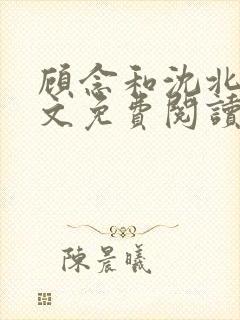 顾念和沈北
文免費閱讀
陳晨曦